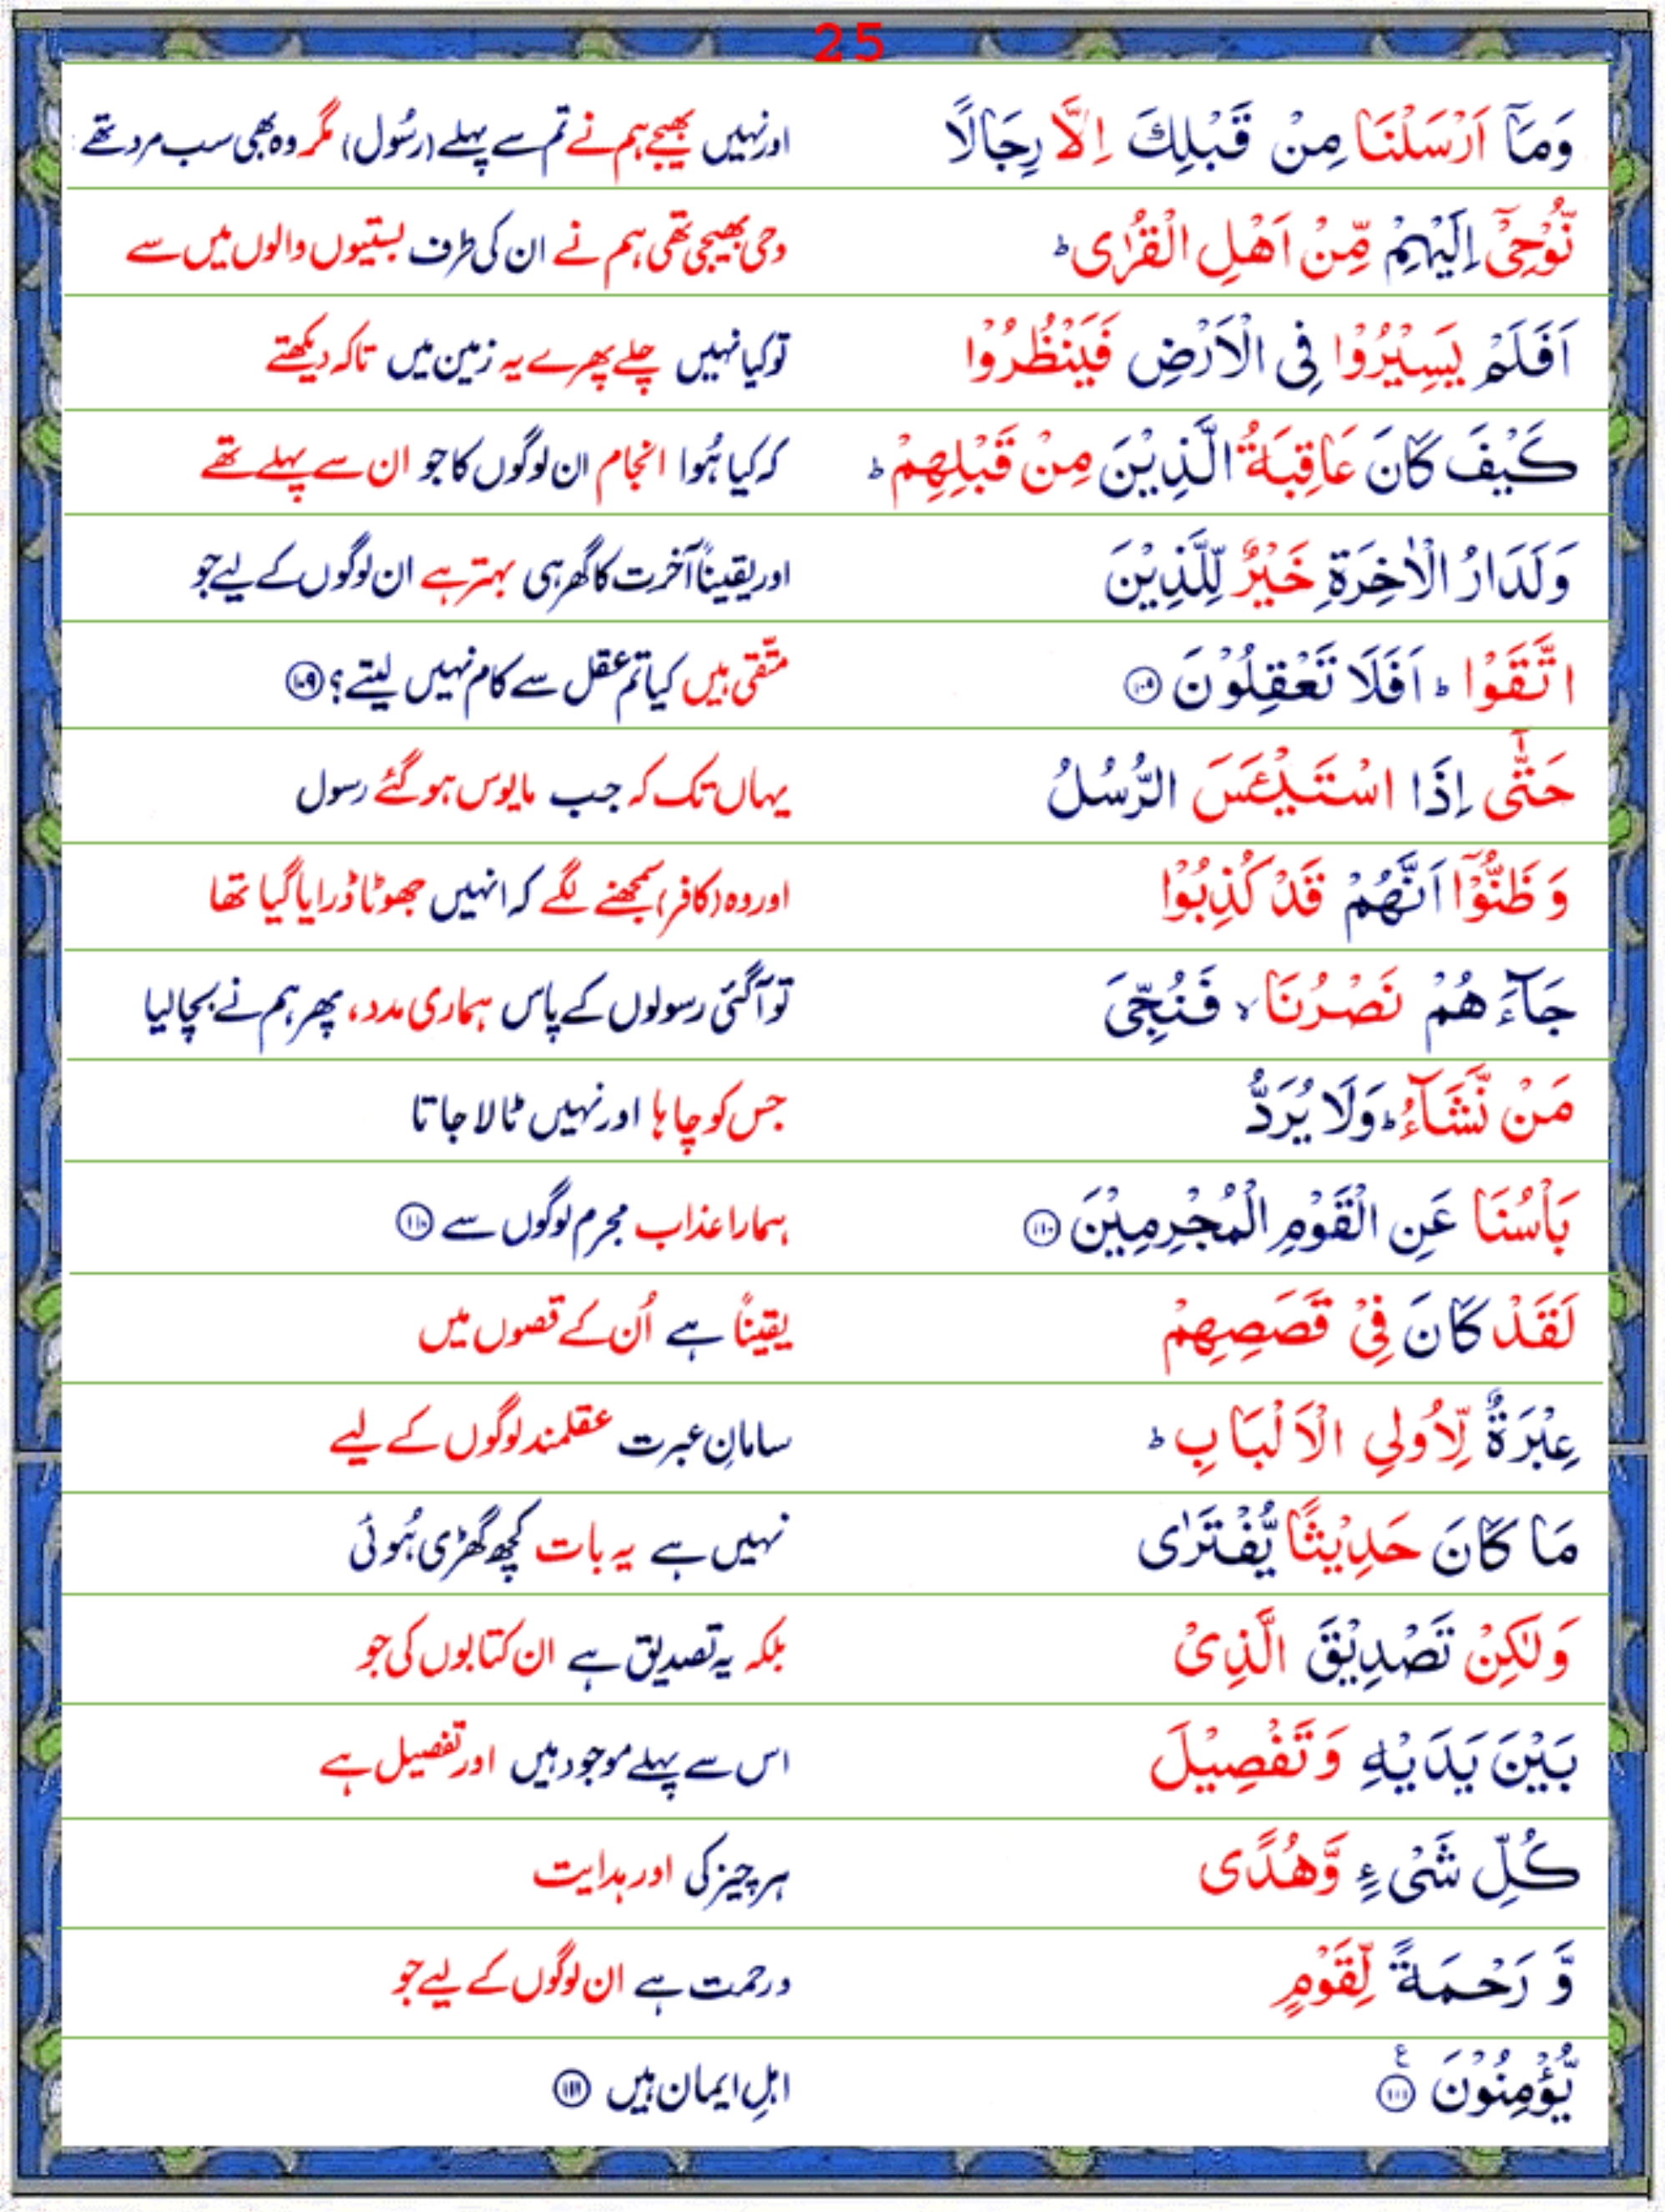 25
وَمَآ اَرْسَلْنَا مِنْ قَبْلِكَ اِلَّا رِجَالًا اور نہیں بھیجے ہم نے تم سے پہلے (رسُول) مگر وہ بھی سب مرد تھے
نُّوْحِیْۤ اِلَیْهِمْ مِّنْ اَهْلِ الْقُرٰی ؕ وحی بھیجی تھی ہم نے ان کی طرف بستیوں والوں میں سے
اَفَلَمْ یَسِیْرُوْا فِی الْاَرْضِ فَیَنْظُرُوْا تو کیا نہیں چلے پھرے یہ زمین میں تاکہ دیکھتے
كَیْفَ كَانَ عَاقِبَةُ الَّذِیْنَ مِنْ قَبْلِهِمْ ؕ کہ کیا ہُوا انجام ان لوگوں کا جو ان سے پہلے تھے
وَلَدَارُ الْاٰخِرَةِ خَیْرٌ لِّلَّذِیْنَ اور یقیناً آخرت کا گھر ہی بہتر ہے ان لوگوں کے لیے جو
اتَّقَوْا ؕ اَفَلَا تَعْقِلُوْنَ ۱۰۹ متّقی ہیں کیا تم عقل سے کام نہیں لیتے؟ ۱۰۹
حَتّٰۤی اِذَا اسْتَیْـَٔسَ الرُّسُلُ یہاں تک کہ جب مایوس ہو گئے رسول
وَ ظَنُّوْۤا اَنَّهُمْ قَدْ كُذِبُوْا اور وہ (کافر) سمجھنے لگے کہ انہیں جھوٹا ڈرایا گیا تھا
جَآءَ هُمْ نَصْرُنَا ۙ فَنُجِّیَ تو آگئی رسولوں کے پاس ہماری مدد، پھر ہم نے بچا لیا
مَنْ نَّشَآءُ ؕ وَلَا یُرَدُّ جس کو چاہا اور نہیں ٹالا جاتا
بَاْسُنَا عَنِ الْقَوْمِ الْمُجْرِمِیْنَ ۱۱۰ ہمارا عذاب مجرم لوگوں سے ۱۱۰
لَقَدْ كَانَ فِیْ قَصَصِهِمْ یقیناً ہے اُن کے قصوں میں
عِبْرَةٌ لِّاُولِی الْاَلْبَابِ ؕ سامانِ عبرت عقلمند لوگوں کے لیے
مَا كَانَ حَدِیْثًا یُّفْتَرٰی نہیں ہے یہ بات کچھ گھڑی ہُوئی
وَلٰكِنْ تَصْدِیْقَ الَّذِیْ بلکہ یہ تصدیق ہے ان کتابوں کی جو
بَیْنَ یَدَیْهِ وَ تَفْصِیْلَ اس سے پہلے موجود ہیں اور تفصیل ہے
كُلِّ شَیْءٍ وَّهُدًی ہر چیز کی اور ہدایت
وَّ رَحْمَةً لِّقَوْمٍ و رحمت ہے ان لوگوں کے لیے جو
یُّؤْمِنُوْنَ ۱۱۱ ع اہلِ ایمان ہیں ۱۱۱